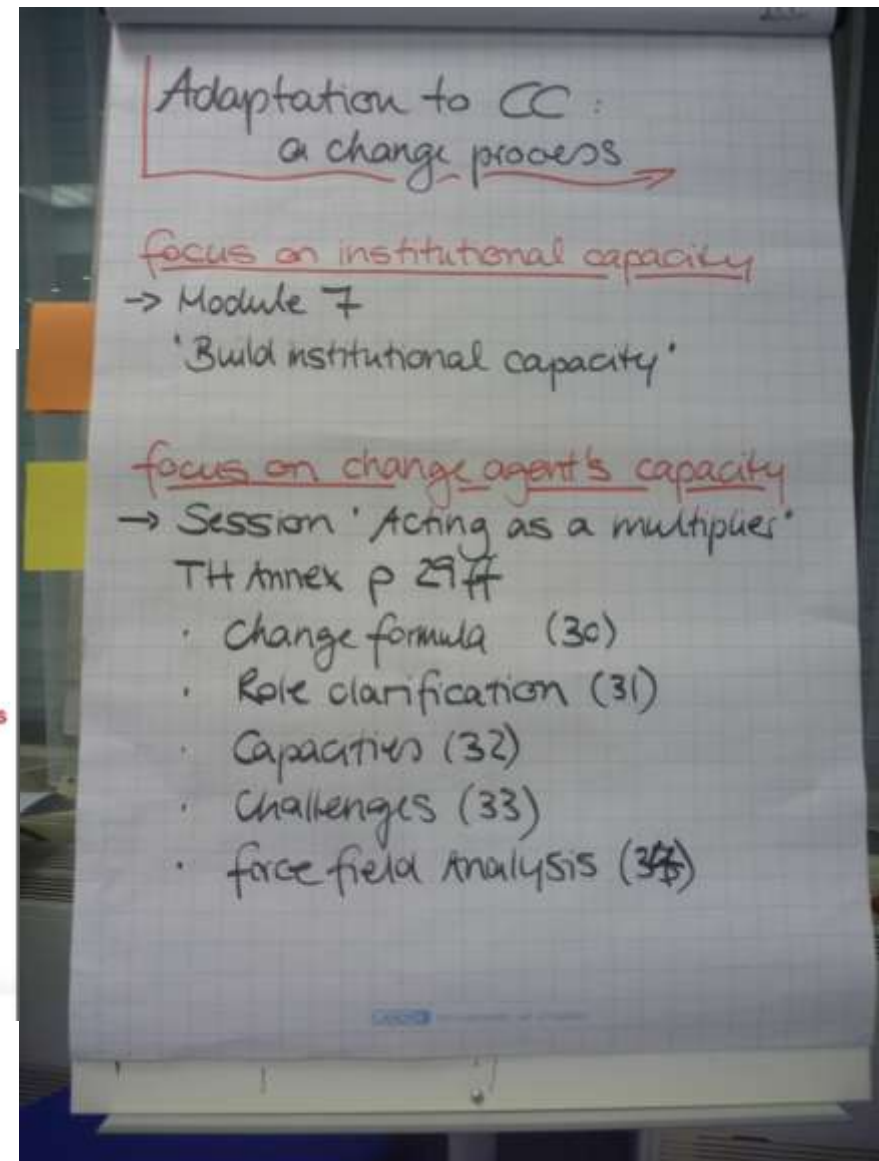 Adaptation to CC :
a change process
focus on institutional capacity
→ Module 7
'Build institutional capacity'
focus on change agent's capacity
→ Session 'Acting as a multiplier'
TH Annex p 29ff
· Change formula (30)
· Role clarification (31)
· Capacities (32)
· Challenges (33)
· force field Analysis